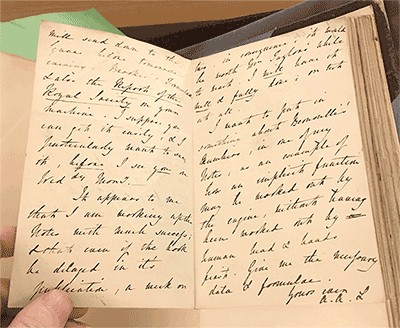 will send down to the
Square before tomorrow
evening, Brooke's Formulae,
& also the Report of the
Royal Society on your
machine. I suppose you
can get it easily, & I
particularly want to see
it, before I see you on
Wed.dy Morng.
It appears to me
that I am working up the
Notes with much success;
& that even if the book
be delayed in its
publication, a week or
two, in consequence, it would
be worth Mr Taylor's while
to wait. I will have it
well & fully done; or not
at all.
I want to put in
something about Bernoulli's
Numbers, in one of my
Notes, as an example of
how an implicit function
may be worked out by
the engine, without having
been worked out by
human head & hands
first. Give me the necessary
data & formulae.
Yours ever
A.A.L